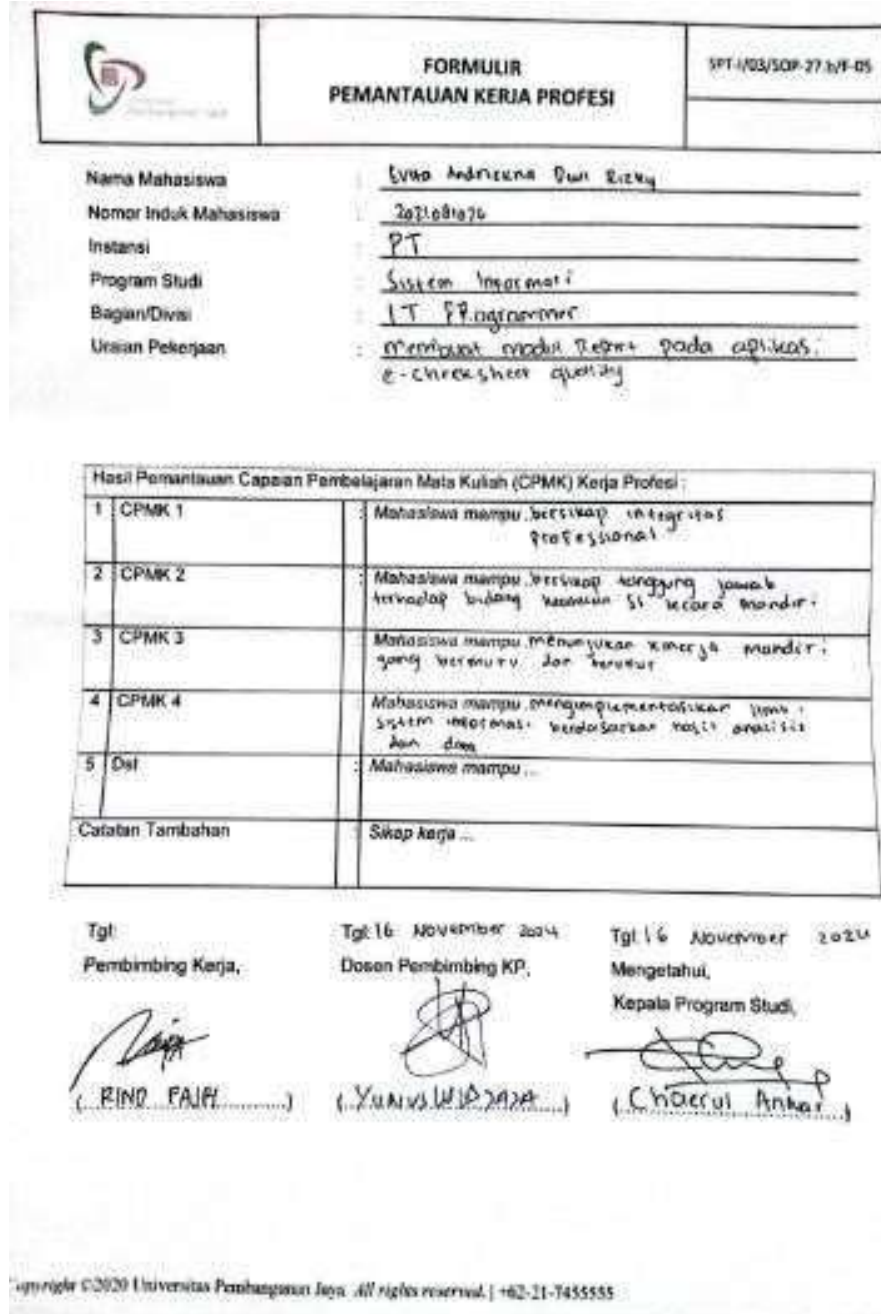 FORMULIR
PEMANTAUAN KERJA PROFESI
SPT-I/03/SOP-27.b/F-05
Nama Mahasiswa : Dwi Rizky
Nomor Induk Mahasiswa : 2021081076
Instansi : PT
Program Studi : Sistem Informasi
Bagian/Divisi : IT PRogrammer
Uraian Pekerjaan : membuat modul Report pada aplikasi
e-checksheet quality
Hasil Pemantauan Capaian Pembelajaran Mata Kuliah (CPMK) Kerja Profesi :
1 CPMK 1 : Mahasiswa mampu bersikap integritas
professional
2 CPMK 2 : Mahasiswa mampu bersikap tanggung jawab
terhadap bidang keahlian SI secara mandiri
3 CPMK 3 : Mahasiswa mampu menunjukan kinerja mandiri
yang bermutu dan terukur
4 CPMK 4 : Mahasiswa mampu mengimplementasikan ilmu
sistem informasi berdasarkan hasil analisis
dan data
5 Dst : Mahasiswa mampu ...
Catatan Tambahan : Sikap kerja ...
Tgl: Tgl: 16 November 2024 Tgl: 16 November 2024
Pembimbing Kerja, Dosen Pembimbing KP, Mengetahui,
Kepala Program Studi,
( RINO ) ( YUNUS WIDJAJA ) ( Chaerul Anwar )
Copyright ©2020 Universitas Pembangunan Jaya. All rights reserved. | +62-21-7455555